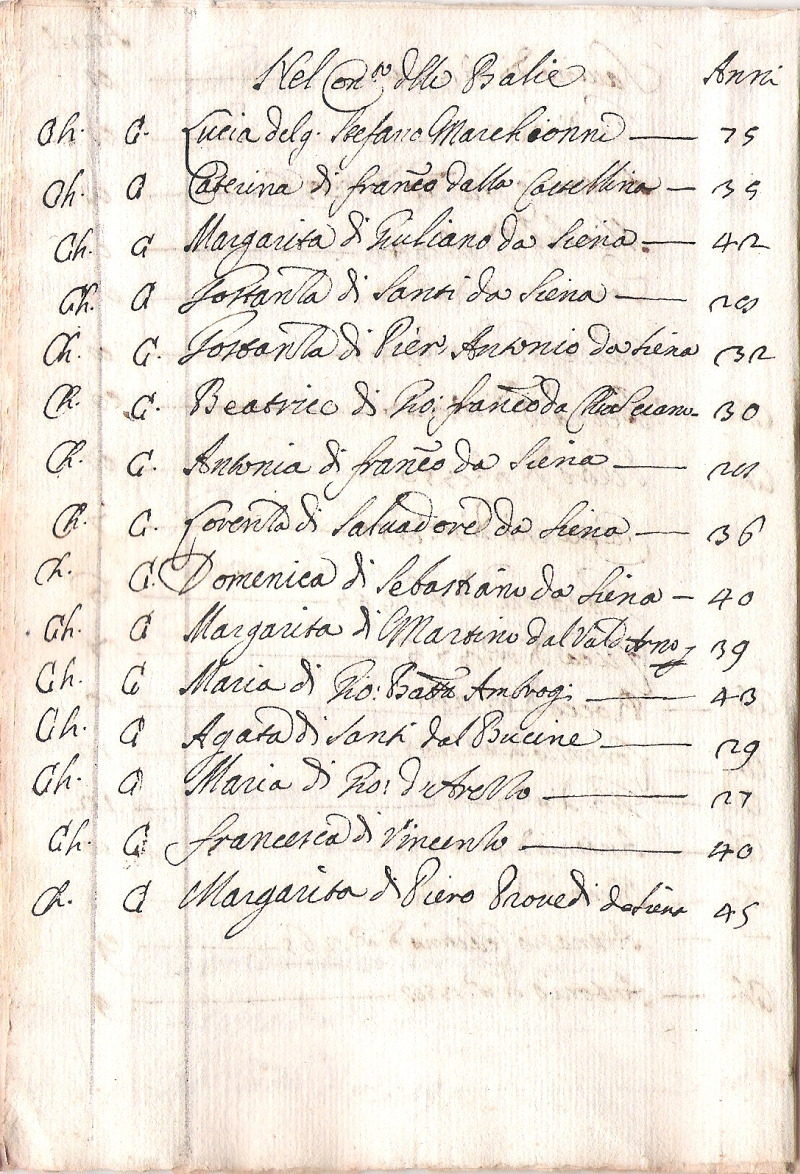 Nel Con.to dlle Balie Anni
Ch. C. Lucia del q. Stefano Marchionni — 75
Ch. C Caterina di Franco dalla Castellina — 35
Ch. C Margarita di Giuliano da Siena — 42
Ch. C Gostanza di Santi da Siena —
Ch. C. Gostanza di Pier Antonio da Siena 32
Ch. C. Beatrice di Gio: Franco da 30
Ch. C. Antonia di Franco da Siena —
Ch. C. Lorenza di Salvadore da Siena — 36
Ch. C. Domenica di Sebastiano da Siena — 40
Ch. C Margarita di Martino dal Vald'Arno 39
Ch. C Maria di Gio: Batta Ambrogi — 43
Ch. C Agata di Santi dal Bucine — 29
Ch. C Maria di Gio: d'Arezzo — 27
Ch. C Francesca di Vincenzo — 40
Ch. C Margarita di Piero Provedi da Siena 45